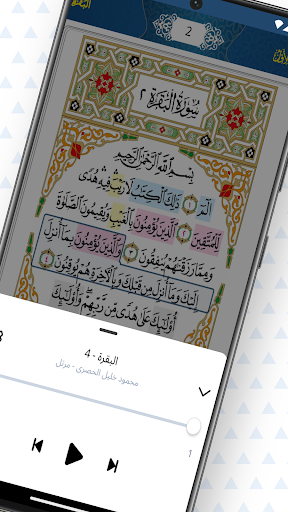 البقرة
2
الجزء الأول
سُورَةُ الْبَقَرَةِ ٢
بِسْمِ اللَّهِ الرَّحْمَٰنِ الرَّحِيمِ
الٓمٓ ١ ذَٰلِكَ الْكِتَٰبُ لَا رَيْبَ فِيهِ هُدًى
لِّلْمُتَّقِينَ ٢ الَّذِينَ يُؤْمِنُونَ بِالْغَيْبِ وَيُقِيمُونَ الصَّلَوٰةَ
وَمِمَّا رَزَقْنَٰهُمْ يُنفِقُونَ ٣ وَالَّذِينَ يُؤْمِنُونَ بِمَا أُنزِلَ
إِلَيْكَ وَمَا أُنزِلَ مِن قَبْلِكَ وَبِالْآخِرَةِ هُمْ يُوقِنُونَ ٤
أُولَٰئِكَ عَلَىٰ هُدًى مِّن رَّبِّهِمْ وَأُولَٰئِكَ
البقرة - 4
محمود خليل الحصري - مرتل
1